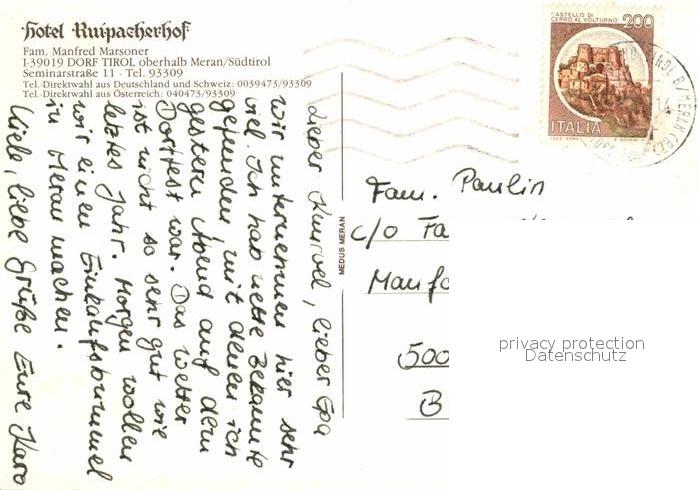 Hotel Ruipacherhof
Fam. Manfred Marsoner
I-39019 DORF TIROL oberhalb Meran/Südtirol
Seminarstraße 11 - Tel. 93309
Tel.-Direktwahl aus Deutschland und Schweiz: 0039473/93309
Tel.-Direktwahl aus Österreich: 040473/93309
lieber Opa
wir unternehmen hier sehr
viel. Ich hab nette Bekannte
gefunden mit denen ich
gestern Abend auf dem
Dorffest war. Das Wetter
ist nicht so sehr gut wie
letztes Jahr. Morgen wollen
wir einen Einkaufsbummel
in Meran machen.
Viele, liebe Grüße Eure Karo
MEDUS MERAN
CASTELLO DI
CERRO AL VOLTURNO
200
ITALIA
Fam. Paulin
c/o Fa
500
B
privacy protection
Datenschutz